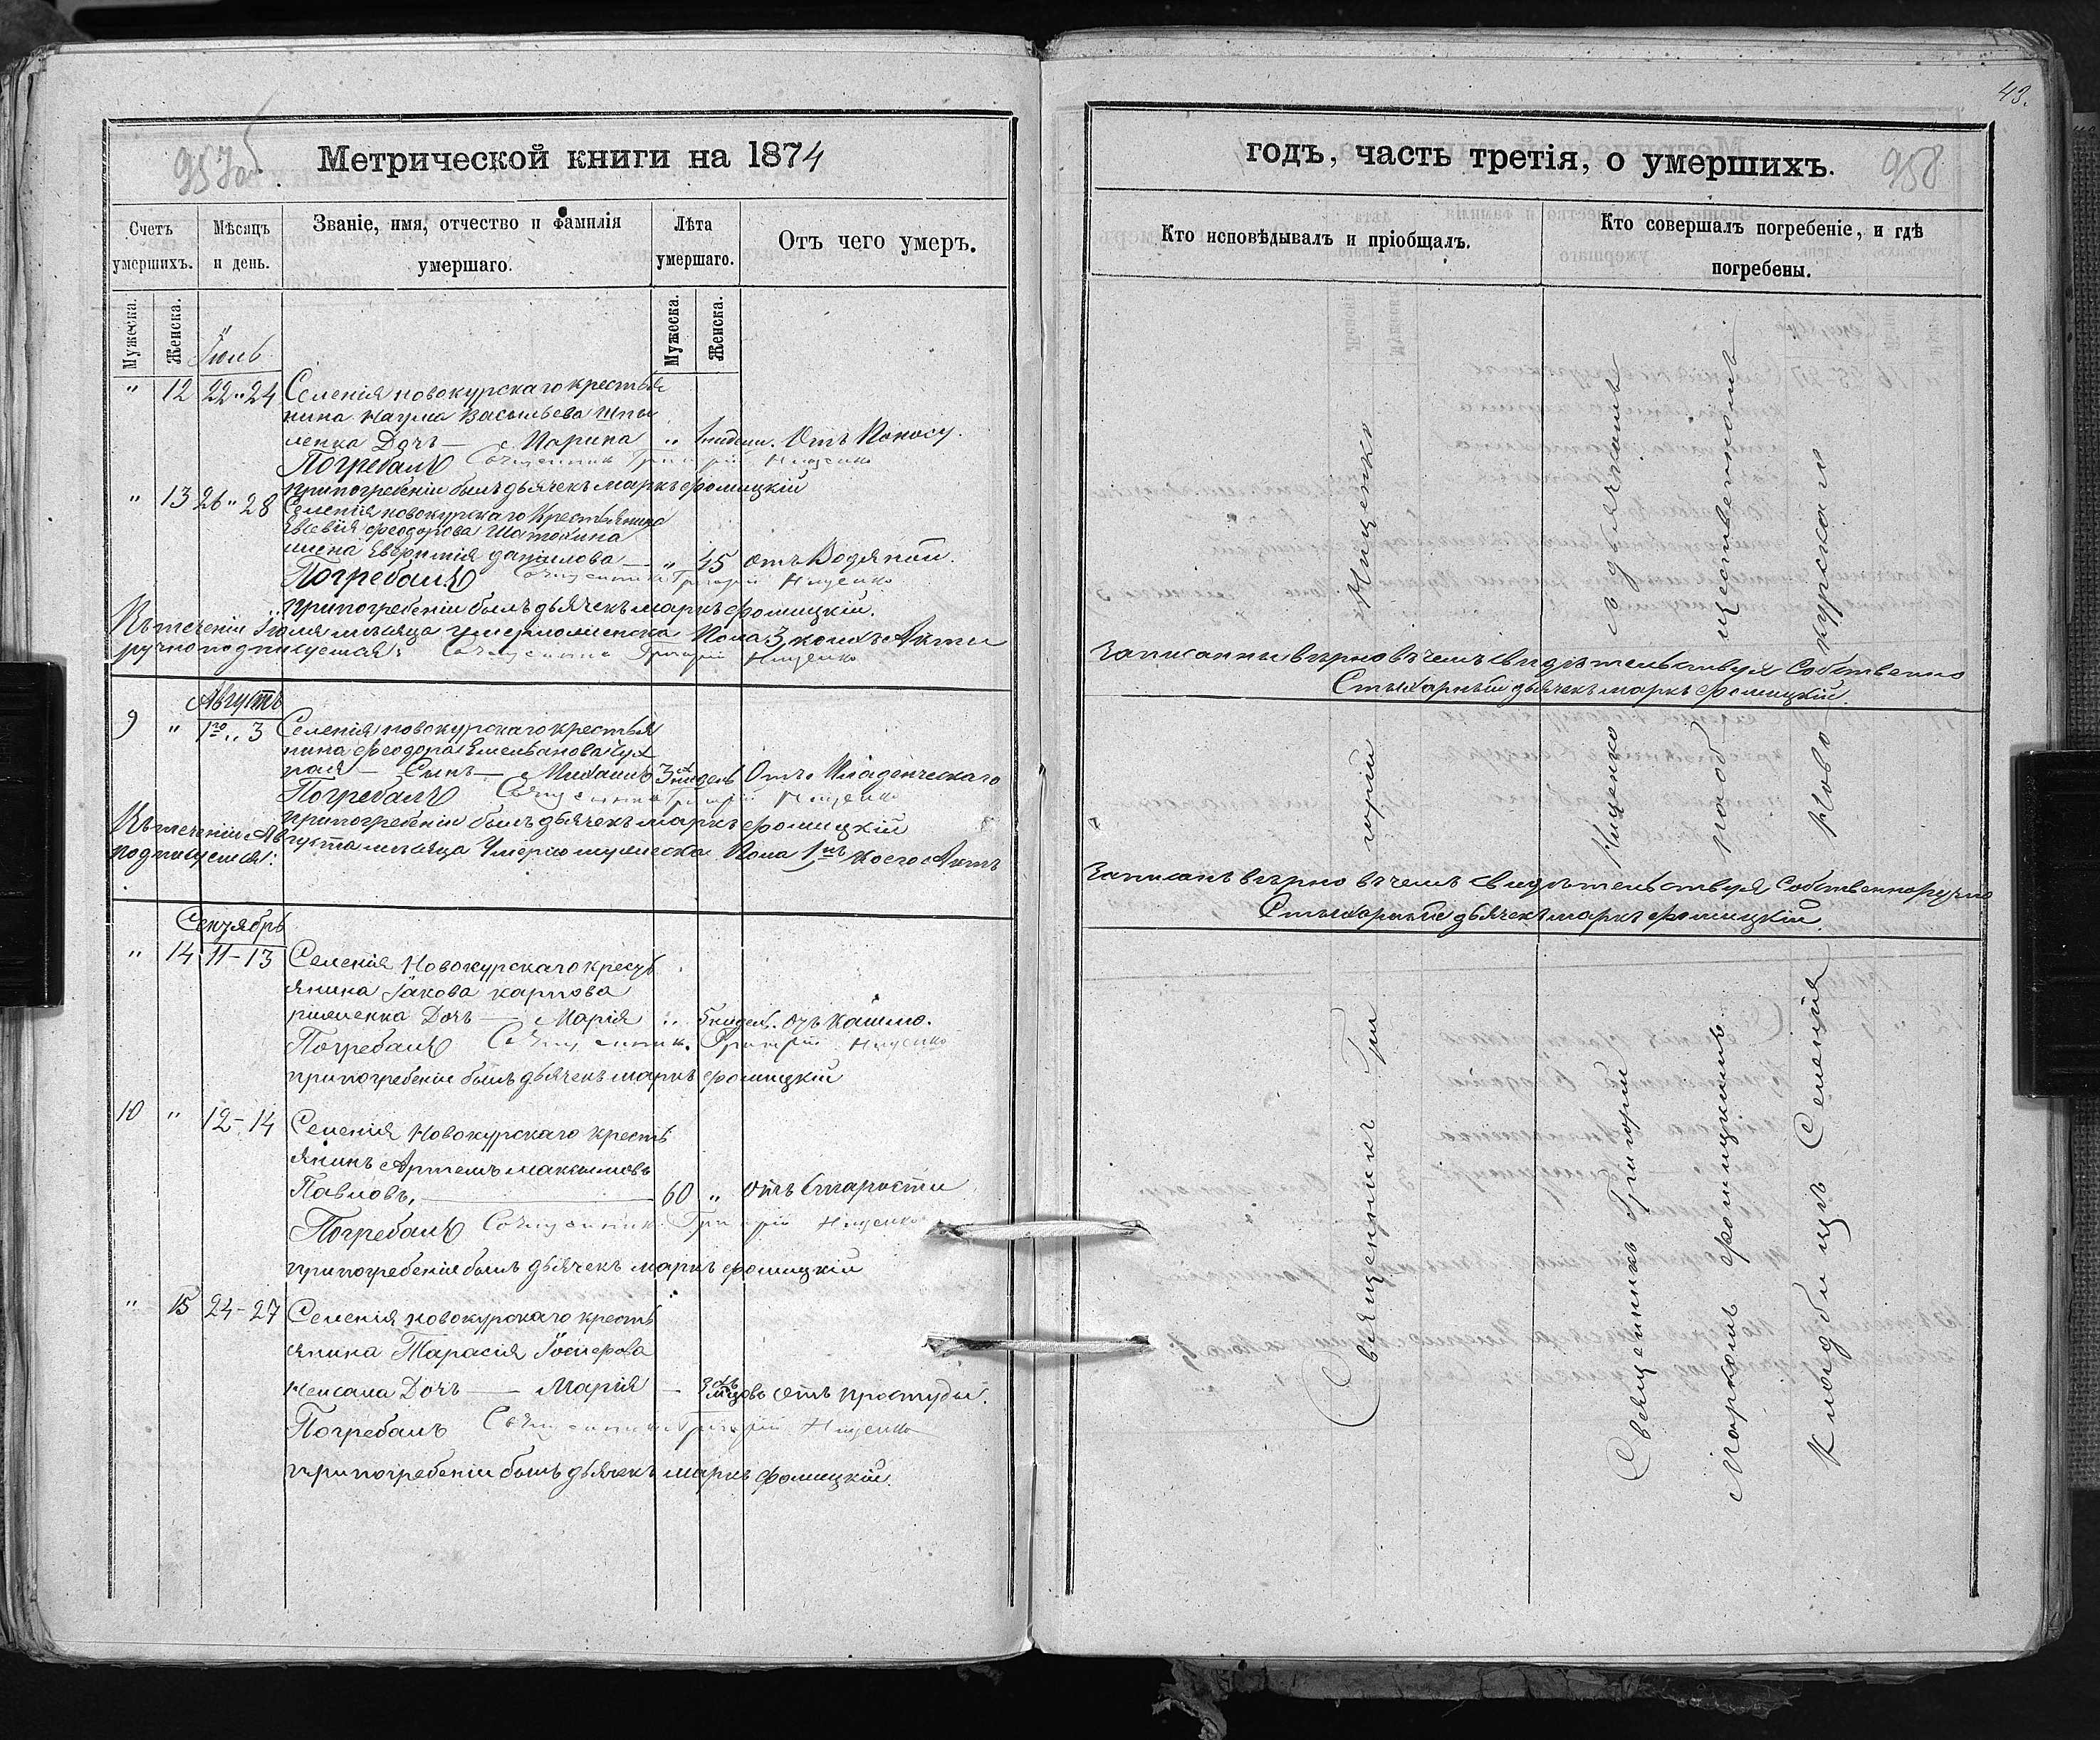 957об
Метрической книги на 1874
Счетъ умершихъ.
Мѣсяцъ и день.
Званіе, имя, отчество и фамилія умершаго.
Лѣта умершаго.
Отъ чего умеръ.
Мужеска.
Женска.
Мужеска.
Женска.
Іюль
" 12 22 " 24 Селенія новокурскаго крестья
нина Наума Васильева
Дочь — Марина " Отъ Поносу.
Погребалъ Священникъ Григорій Нищенко
при погребеніи былъ дьячекъ Маркъ Фомицкій
" 13 26 " 28 Селенія новокурскаго Крестьянина
Евсевія Феодорова
жена Евфимія Данилова — " 45 отъ Водяной.
Погребалъ Священникъ Григорій Нищенко
при погребеніи былъ дьячекъ Маркъ Фомицкій.
Въ теченіи Іюля мѣсяца умерло женска Пола 3, коихъ Акти
ручно подписуемся: Священникъ Григорій Нищенко
Августъ
9 " 1го " 3 Селенія новокурскаго крестья
нина Феодора Емельянова Чух
рая — Сынъ — Михаилъ 3хъ недель Отъ Младенческаго
Погребалъ Священникъ Григорій Нищенко
при погребеніи былъ дьячекъ Маркъ Фомицкій
Въ теченіи Августа мѣсяца Умерло мужеска Пола 1нъ коего Актъ
подписуемся:
Сентябрь
" 14 11-13 Селенія Новокурскаго кресть
янина Іакова Карпова
Дочь — Марія " 5 недель. Отъ Кашлю.
Погребалъ Священникъ Григорій Нищенко
при погребеніи былъ дьячекъ Маркъ Фомицкій
10 " 12-14 Селенія Новокурскаго кресть
янинъ Артемъ Максимовъ
Павловъ, — 60 " отъ Старости
Погребалъ Священникъ Григорій Нищенко
при погребеніи былъ дьячекъ Маркъ Фомицкій
" 15 24-27 Селенія новокурскаго кресть
янина Тарасія Іосифова
Дочь — Марія — 3хъ отъ простуды.
Погребалъ Священникъ Григорій Нищенко
при погребеніи былъ дьячекъ Маркъ Фомицкій.
43.
годъ, часть третія, о умершихъ.
958
Кто исповѣдывалъ и пріобщалъ.
Кто совершалъ погребеніе, и гдѣ погребены.
Записанны вѣрно въ чемъ свидѣтельствуя Собственно
Стихарный дьячекъ Маркъ Фомицкій
Записанъ вѣрно въ чемъ свидѣтельствуя Собственноручно
Стихарный дьячекъ Маркъ Фомицкій.
Священникъ Григорій Нищенко
Священникъ Григорій Нищенко съ дьячкомъ
Маркомъ Фомицкимъ на общественномъ
Кладбищѣ Селенія Ново-курскаго